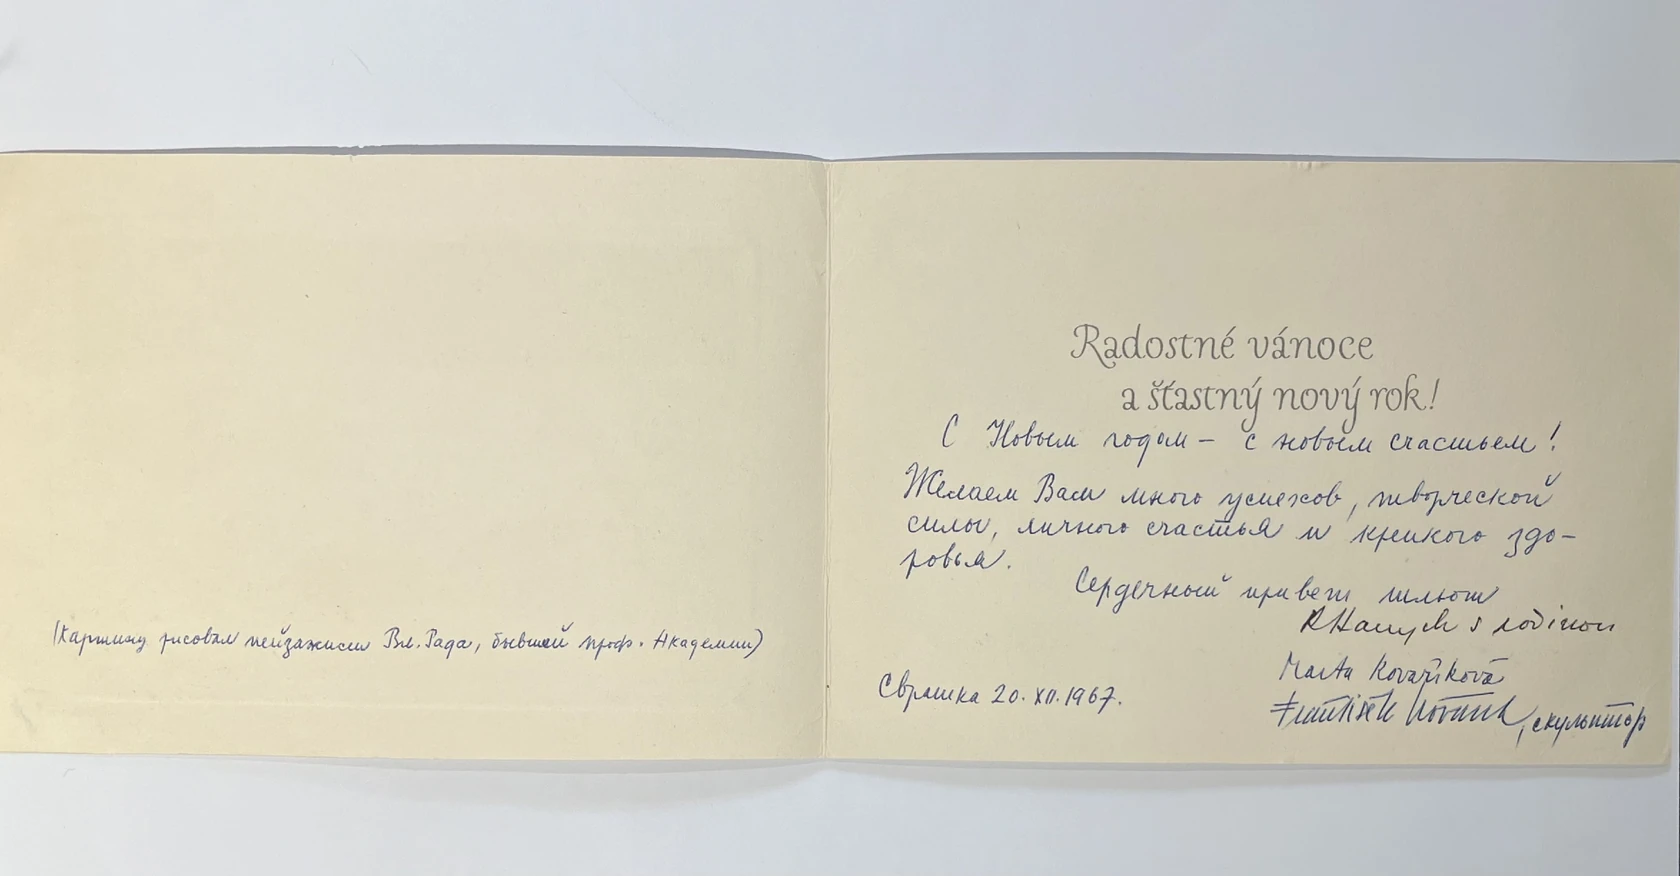 (Картину рисовал пейзажист Вл. Рада, бывший проф. Академии)
Radostné vánoce
a šťastný nový rok!
С Новым годом – с новым счастьем!
Желаем Вам много успехов, творческой
силы, личного счастья и крепкого здо-
ровья.
Сердечный привет шлют
s rodinou
Marta Kovaříková
20. XII. 1967.
František, скульптор